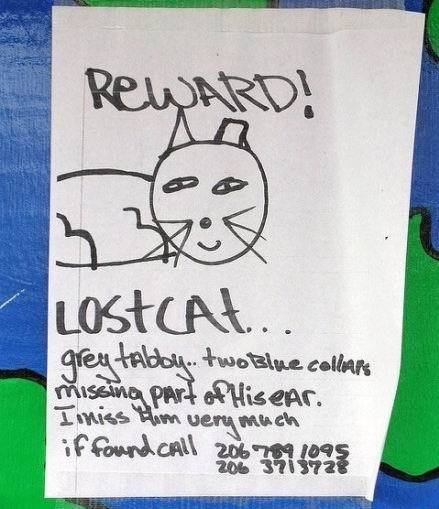 REWARD!
LOST CAT...
grey tabby.. two Blue collars
missing part of His ear.
I miss Him very much
if found call 206 789 1095
206 371 3728